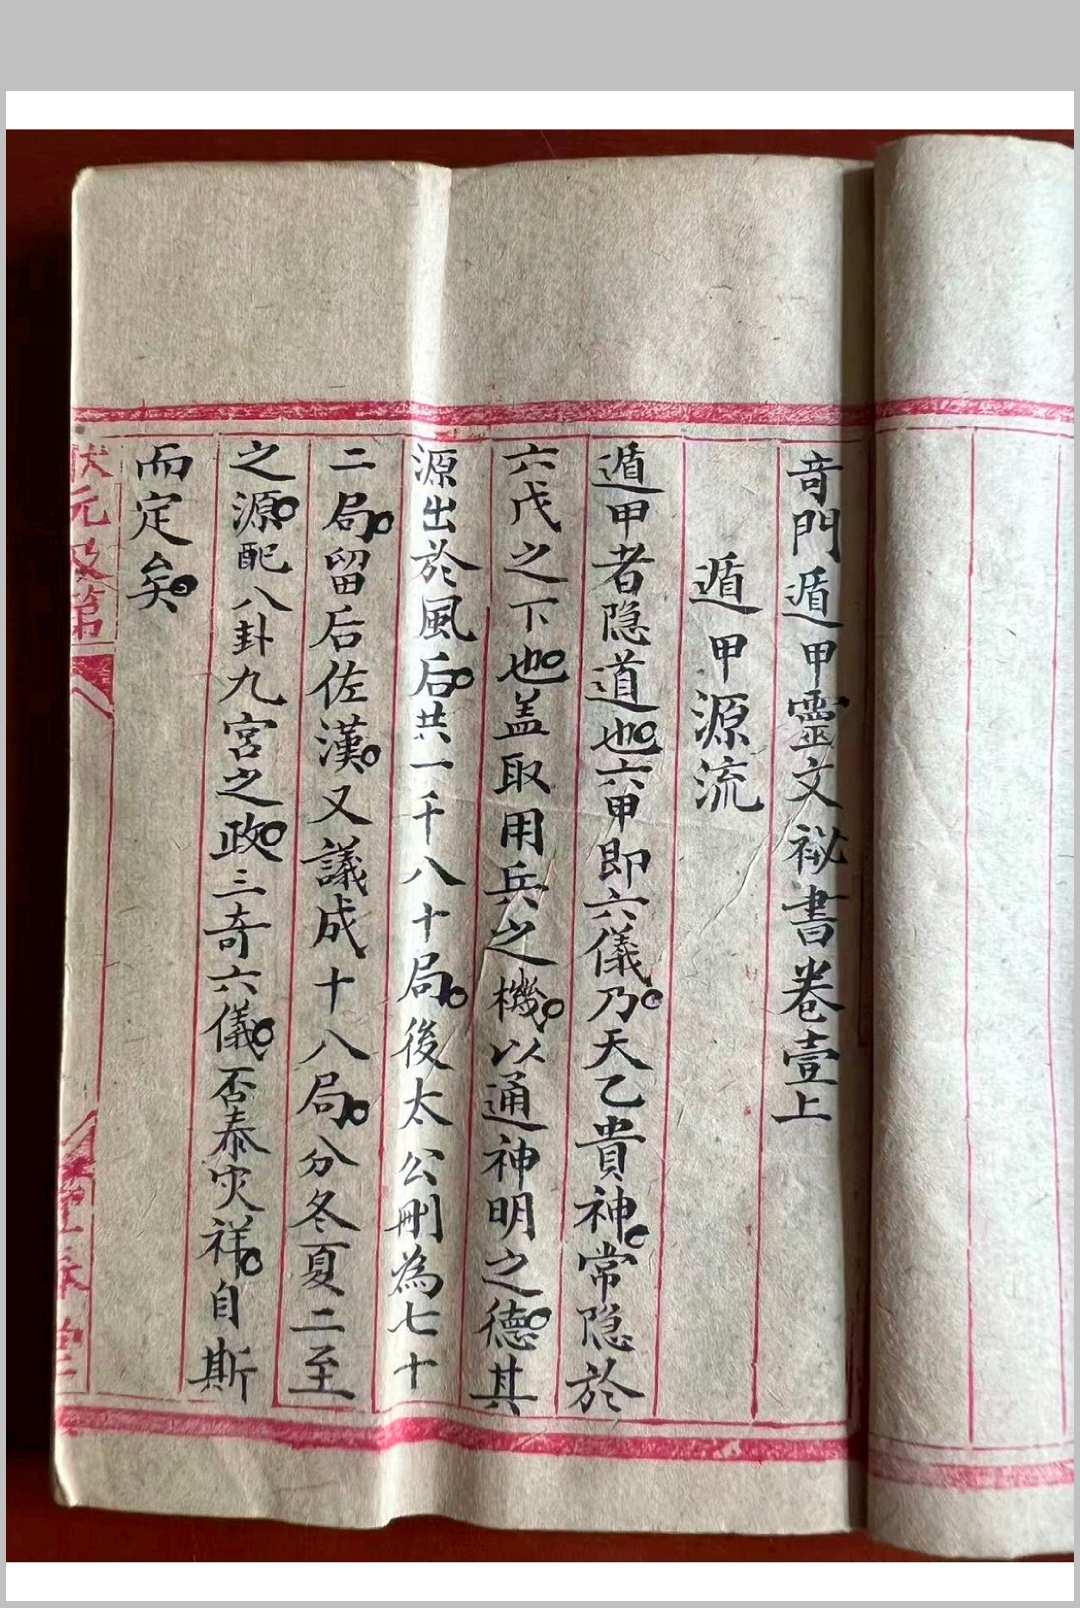 奇門遁甲靈文祕書卷壹上
遁甲源流
遁甲者隐道也六甲即六儀乃天乙貴神常隐於
六戊之下也盖取用兵之機以通神明之德其
源出於風后共一千八十局後太公刪為七十
二局留后佐漢又議成十八局分冬夏二至
之源配八卦九宮之政三奇六儀否泰灾祥自斯
而定矣
狀元及第